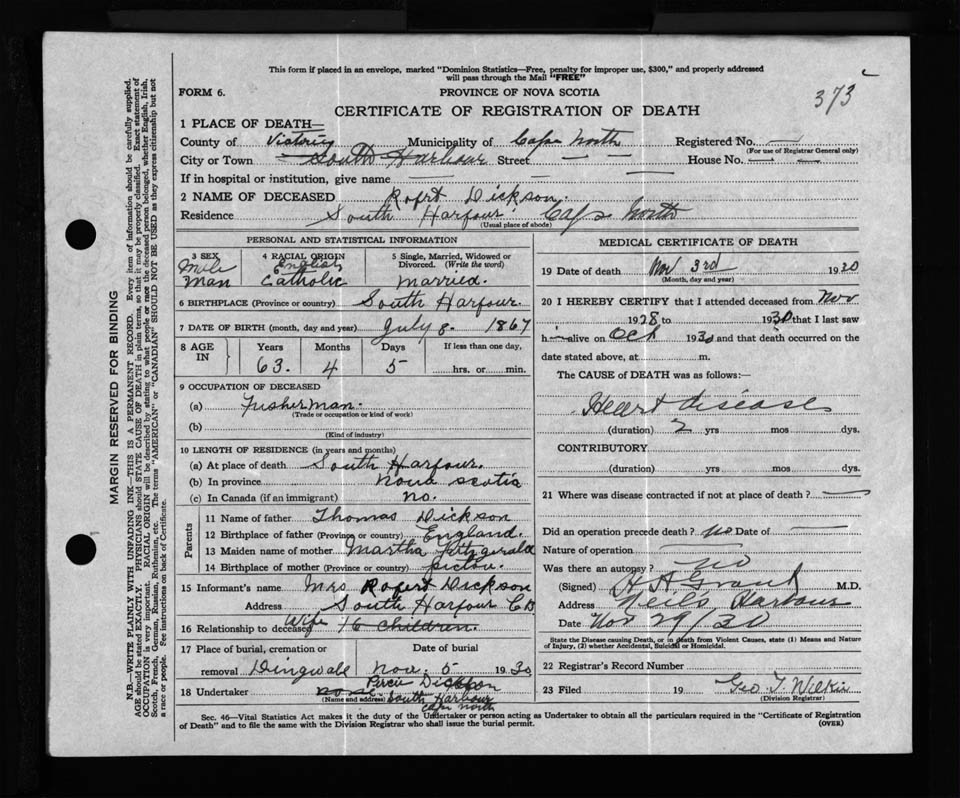 This form if placed in an envelope, marked "Dominion Statistics—Free, penalty for improper use, $300," and properly addressed
will pass through the Mail "FREE"
FORM 6. PROVINCE OF NOVA SCOTIA
373
CERTIFICATE OF REGISTRATION OF DEATH
1 PLACE OF DEATH—
County of Victoria Municipality of Cape North Registered No.
(For use of Registrar General only)
City or Town South Harbour Street — — House No. — —
If in hospital or institution, give name
2 NAME OF DECEASED Robrt Dickson.
Residence South Harbour. Cape North
(Usual place of abode)
PERSONAL AND STATISTICAL INFORMATION
3 SEX 4 RACIAL ORIGIN 5 Single, Married, Widowed or
Divorced. (Write the word)
Male English
man Catholic married.
6 BIRTHPLACE (Province or country) South Harbour.
7 DATE OF BIRTH (month, day and year) July 8- 1867
8 AGE IN Years Months Days If less than one day,
63. 4 5 hrs. or min.
9 OCCUPATION OF DECEASED
(a) Fusherman.
(Trade or occupation or kind of work)
(b)
(Kind of industry)
10 LENGTH OF RESIDENCE (in years and months)
(a) At place of death South Harbour.
(b) In province nova scotia
(c) In Canada (if an immigrant) no.
Parents
11 Name of father Thomas Dickson
12 Birthplace of father (Province or country) England.
13 Maiden name of mother Martha Fitzgerald
14 Birthplace of mother (Province or country) pictou.
15 Informant's name Mrs Robert Dickson
Address South Harbour CB
16 Relationship to deceased Wife 16 children.
17 Place of burial, cremation or Date of burial
removal Dingwall Nov. 5 1930
18 Undertaker none. Dickson
(Name and address) South Harbour
Cape North
MEDICAL CERTIFICATE OF DEATH
19 Date of death Nov 3rd 1930
(Month, day and year)
20 I HEREBY CERTIFY that I attended deceased from Nov
1928 to 1930 that I last saw
h— alive on Oct 1930 and that death occurred on the
date stated above, at m.
The CAUSE of DEATH was as follows:—
Heart disease
(duration) 2 yrs mos dys.
CONTRIBUTORY
(duration) yrs mos dys.
21 Where was disease contracted if not at place of death? —
Did an operation precede death? no Date of —
Nature of operation —
Was there an autopsy? no
(Signed) H A Grant M.D.
Address Neil's Harbour
Date Nov 29/30
State the Disease causing Death, or in death from Violent Causes, state (1) Means and Nature
of Injury, (2) whether Accidental, Suicidal or Homicidal.
22 Registrar's Record Number
23 Filed 19 Geo. T. Wilkie
(Division Registrar)
Sec. 46—Vital Statistics Act makes it the duty of the Undertaker or person acting as Undertaker to obtain all the particulars required in the "Certificate of Registration
of Death" and to file the same with the Division Registrar who shall issue the burial permit. (OVER)
MARGIN RESERVED FOR BINDING
N.B.—WRITE PLAINLY WITH UNFADING INK—THIS IS A PERMANENT RECORD. Every item of information should be carefully supplied.
AGE should be stated EXACTLY. PHYSICIANS should STATE CAUSE OF DEATH in plain terms, so that it may be properly classified. Exact statement of
OCCUPATION is very important. RACIAL ORIGIN will be described by stating to what people or race the deceased person belonged, whether English, Irish,
Scotch, French, German, Russian, Ruthenian, etc. The terms "AMERICAN" or "CANADIAN" SHOULD NOT BE USED as they express citizenship but not
a race or people. Fee instructions on back of Certificate.